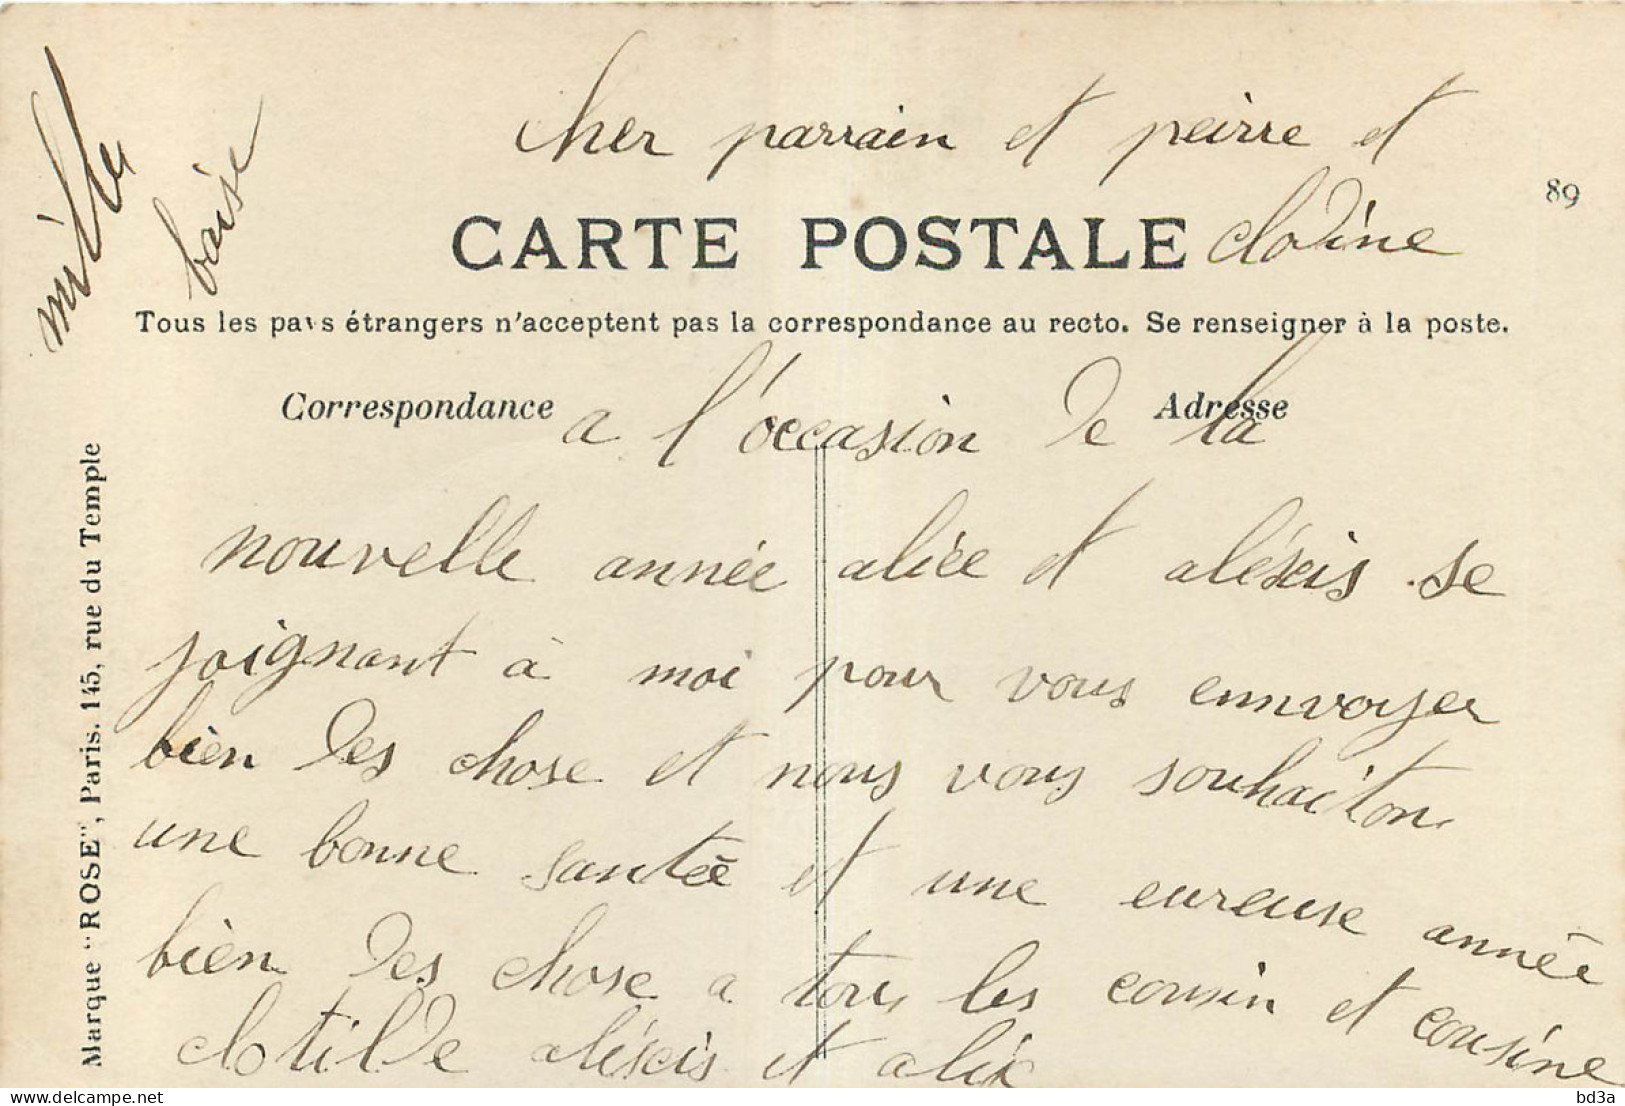 cher parrain et peirre et
clodine
89
CARTE POSTALE
Tous les pays étrangers n'acceptent pas la correspondance au recto. Se renseigner à la poste.
Correspondance
Adresse
a l'occasion de la
nouvelle année alice et aléxis se
joignant à moi pour vous ennvoyer
bien des chose et nous vous souhaiton
une bonne santée et une eureuse année
bien des chose a tous les cousin et cousine
clotilde aléxis et alix
mille
baise
Marque "ROSE", Paris. 145, rue du Temple
delcampe.net
bd3a